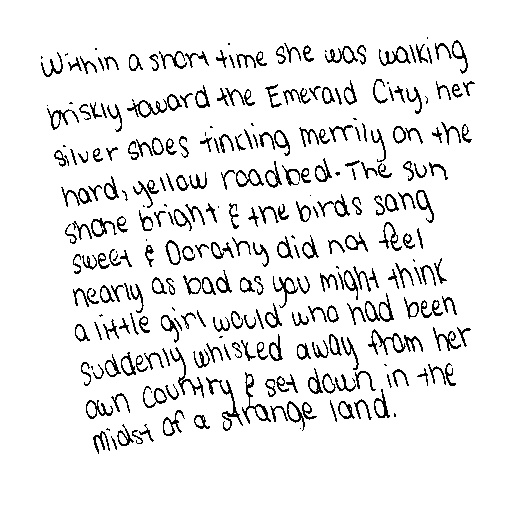 Within a short time she was walking
briskly toward the Emerald City, her
silver shoes tinkling merrily on the
hard, yellow roadbed. The sun
shone bright & the birds sang
sweet & Dorothy did not feel
nearly as bad as you might think
a little girl would who had been
suddenly whisked away from her
own country & set down in the
midst of a strange land.